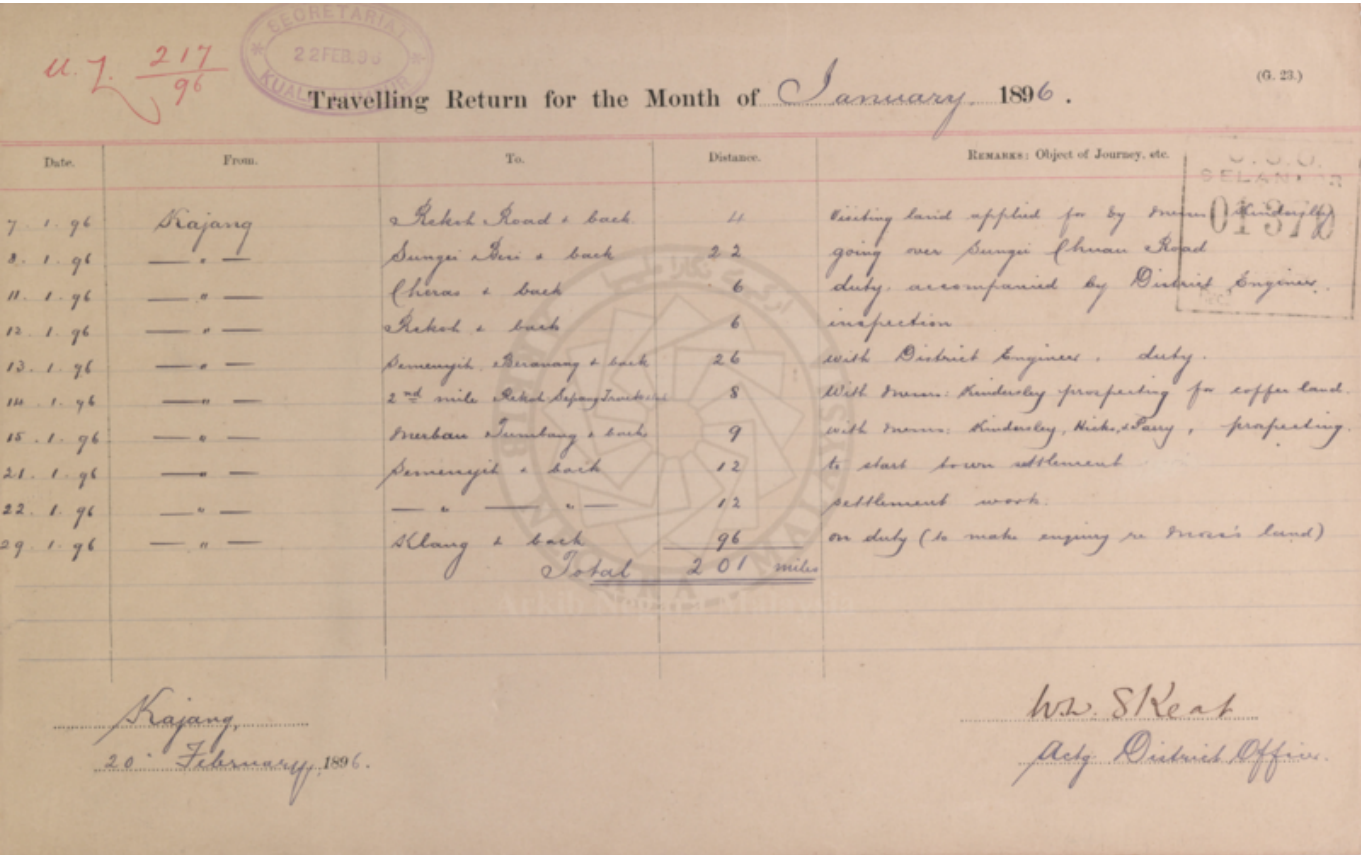 U. L. 217/96
SECRETARIAT
22 FEB. 96
KUALA
(G. 23.)
Travelling Return for the Month of January 1896.
Date. From. To. Distance. REMARKS: Object of Journey, etc.
SELANGOR
01370
7. 1. 96 Kajang Rekoh Road & back 4 Visiting land applied for by Messrs Kindersley
8. 1. 96 — " — Sungei Besi & back 22 going over Sungei Chuau Road
11. 1. 96 — " — Cheras & back 6 duty. accompanied by District Engineer.
12. 1. 96 — " — Rekoh & back 6 inspection
13. 1. 96 — " — Semenyih, Beranang & back 26 with District Engineer. duty.
14. 1. 96 — " — 2nd mile Rekoh Sepang Trace 8 With Messrs: Kindersley prospecting for coffee land.
15. 1. 96 — " — Merbau Tumbang & back 9 with Messrs: Kindersley, Hicks, & Parry, prospecting.
21. 1. 96 — " — Semenyih & back 12 to start town settlement
22. 1. 96 — " — — " — " — 12 settlement work.
29. 1. 96 — " — Klang & back 96 on duty (to make enquiry re land)
Total 201 miles
Arkib Negara Malaysia
Kajang,
20 February, 1896.
W. Skeat
Actg District Officer.